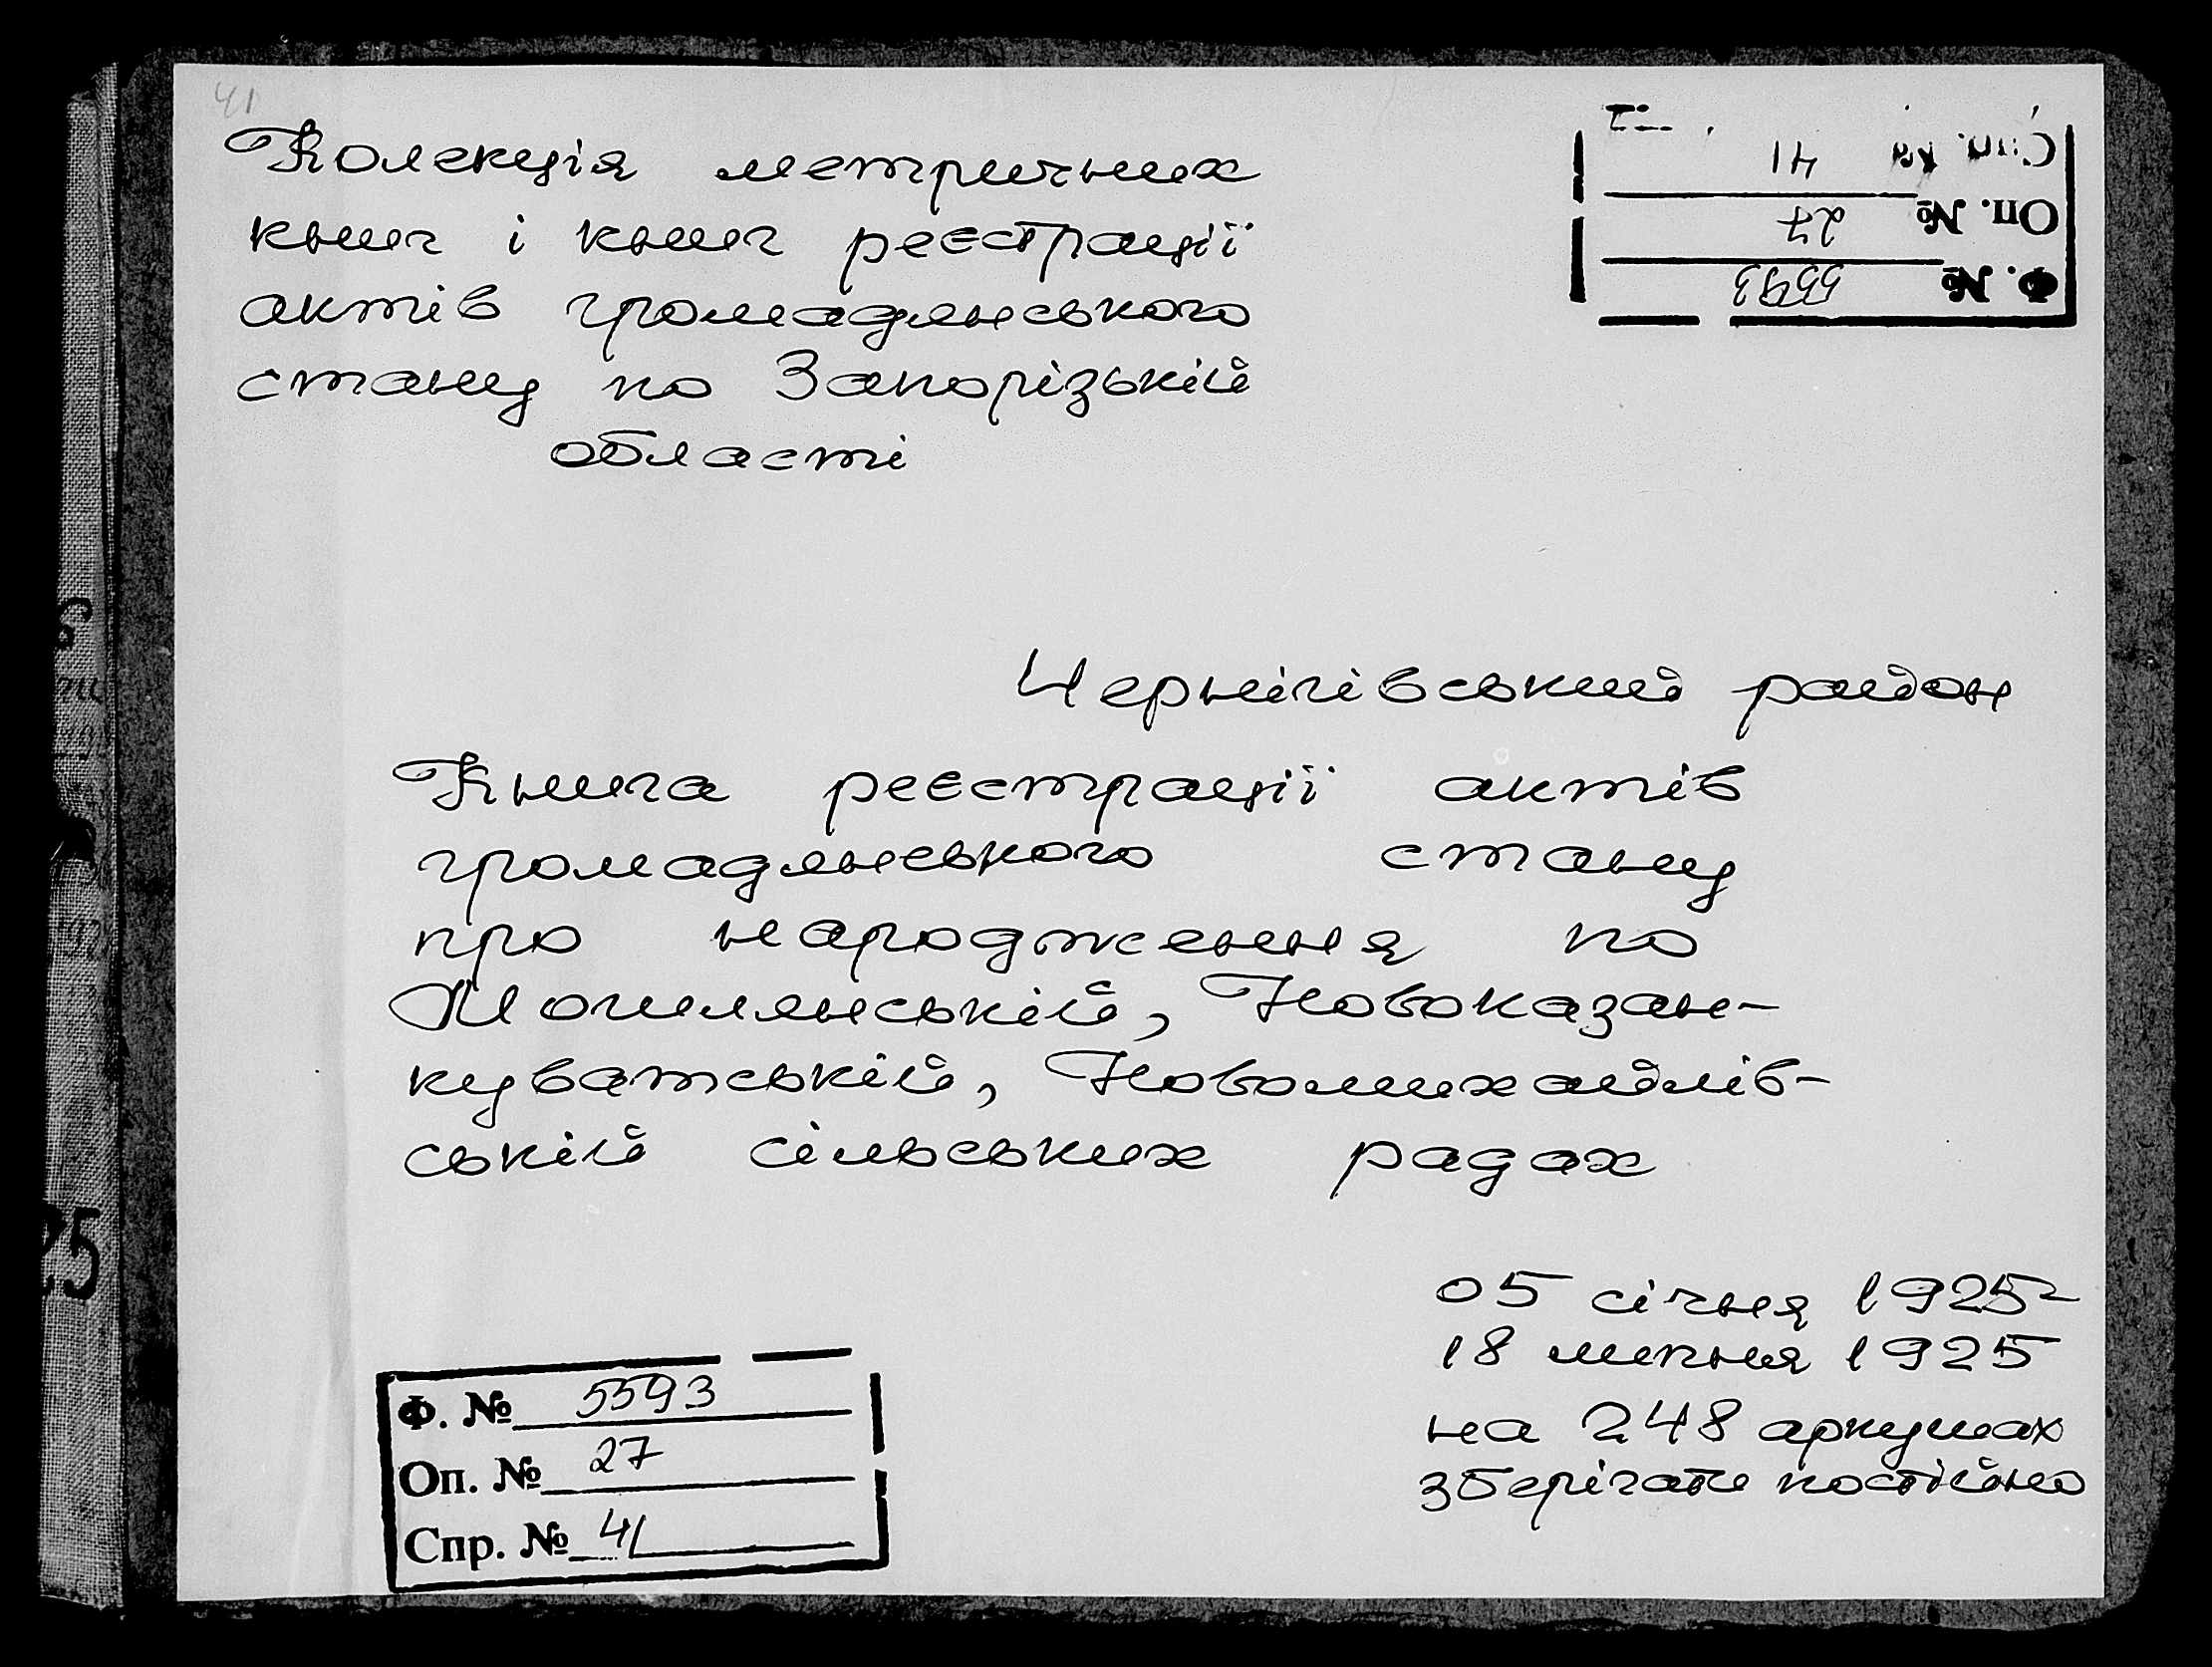 41
Колекція метричних
книг і книг реєстрації
актів громадянського
стану по Запорізькій
області
Спр. № 41
Оп. № 27
Ф. № 5593
Чернігівський район
Книга реєстрації актів
громадянського стану
про народження по
Могилянській, Новоказан-
куватській, Новомихайлів-
ській сільських радах
05 січня 1925-
18 липня 1925
на 248 аркушах
зберігати постійно
Ф. № 5593
Оп. № 27
Спр. № 41
25